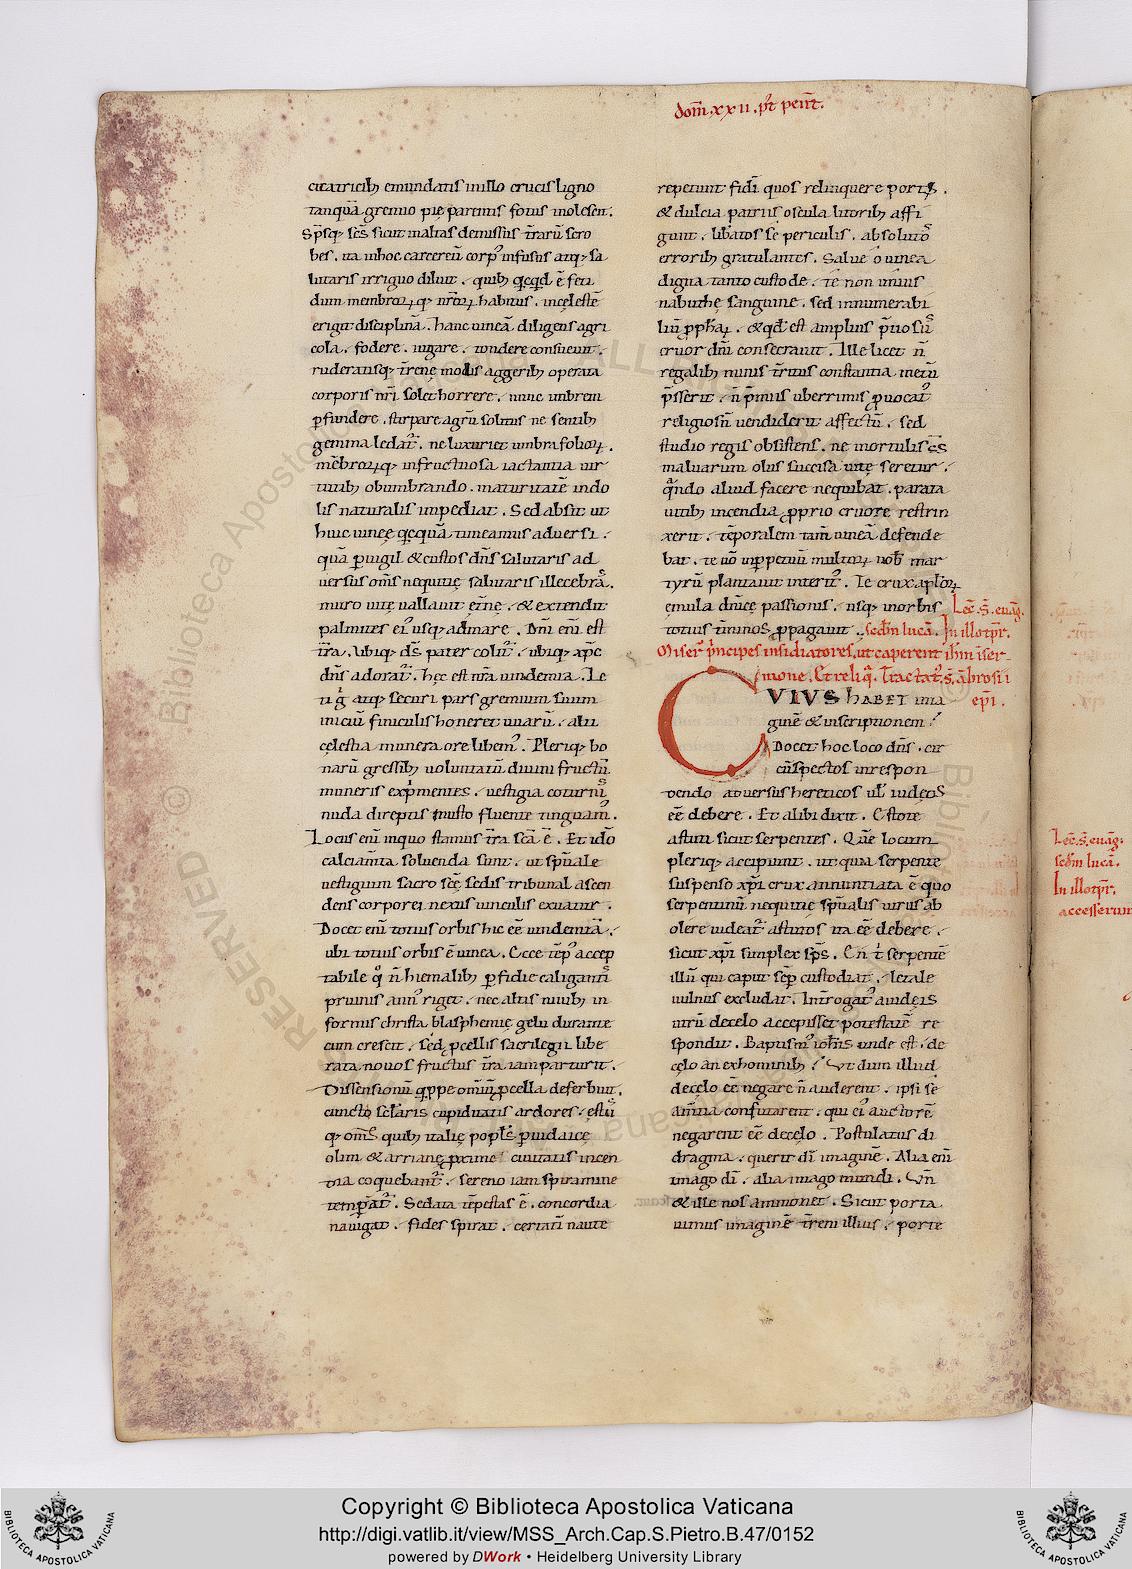 dom̅. xxii. p̅t pent̅.
cicatricib; emundatis in illo crucis ligno
tanquā gremio pię parentis fotus inolescit.
Sp̅sq; sc̅s sicut in altas demissus t̅rarū scro
bes. ita in hoc carcereū corp' infusus atq; sa
lutaris irriguo diluit. quib; quicquid ē feti
dum membrorumq; nr̅orum habitus. in cęlestē
erigit disciplinā. hanc uineā diligens agri
cola. fodere. iugare. tondere consueuit.
ruderatisq; t̅renę molis aggerib; operata
corporis nr̅i solet horrere. nunc imbrem
perfundere. stirpare agrū solitus ne sentib;
gemma ledat'. ne luxuriet umbra foliorum.
mēbrorumq; infructuosa iactantia uir
tutib; obumbrando. maturitatē indo
lis naturalis impediat. Sed absit ut
huic uineę quicquā timeamus aduersi.
quā peruigil & custos dn̅s salutaris ad
uersus om̅s nequitię salutaris illecebras.
muro uitę uallauit et̅nę. & extendit
palmites ei' usq; ad mare. Dn̅i eni̅ est
t̅ra. Ubiq; ds̅ pater colit'. ubiq; xp̅c
dn̅s adorat'. hęc est nr̅a uindemia. Le
ui g̅ atq; securi pars gremium suum
initiū finiculis honeret uuarū. alii
cęlestia munera ore libent. Pleriq; bo
narū gressib; uoluntatū diuini fructū
muneris exprimentes. uestigia coturnis
nuda direptis musto fluente tinguant.
Locus eni̅ in quo stamus t̅ra sc̅a ē. Et ido
calciam̅ta soluenda sunt. ut sp̅uale
uestigium sacro sc̅ę sedis tribunal ascen
dens corporei nexus uinculis exuatur.
Docet eni̅ totius orbis hic ēe uindemiā.
ubi totius orbis ē uinea. Ecce tēp' accep
tabile quo n̅ hiemalib; perfidię caligantis
pruinis ann' riget. nec altis niuib; in
formis christa blasphemię gelu durante
cum crescit. sed procellis sacrilegii libe
rata nouos fructus t̅ra iam parturit.
Dissensionū quippe omniū procella deferbuit.
cuncto seclaris cupiditatis ardores. estus
q; om̅s quib; italię popls̅ per iudaicę
olim & arrianę proxime ciuitatis incen
tia coquebant'. sereno iam spiramine
temperat'. Sedata tēpestas ē. concordia
nauigat. fides spirat. certatī nautę
repetunt fidi quos relinquere portus.
& dulcia patriis oscula litorib; affi
gunt. lib̅atos se periculis. absolutos
errorib; gratulantes. Salue o uinea
digna tanto custode. Te non unius
nabuthę sanguine. sed innumerabi
liū prophetarum. & quod est amplius p̅tiosus
cruor dn̅i consecrauit. Ille licet n̅
regalib; minis t̅ritus constantiā metū
presserit. n̅ premiis uberrimis prouocat'
religiosū uendiderit affectū. sed
studio regis obsistens. ne in ortulis ei's
maluarum olus succisa uite sereretur.
quando aliud facere nequibat. parata
uitib; incendia proprio cruore restrin
xerit. tēporalem tam̅ uineā defende
bat. te uo̅ in perpetuū multorum nob̅ mar
tyrū plantauit interit'. Te crux aplo̅rum
ęmula dn̅icę passionis. usq; in orbis
totius t̅minos propagauit. Lec̅. s̅. euāg̅.
sedm̅ lucā. In illo tp̅r.
Miser̅ principes insidiatores. ut caperent ih̅m in ser-
mone. Et reliq̅. Tractat'. s̅. ambrosii
epi̅.
CVIVS HABET ima
ginē & inscriptionem?
Docet hoc loco dn̅s. cir
cūspectos in respon
dendo aduersus hereticos uł iudęos
ēe debere. Et alibi dixit. Estote
astuti sicut serpentes. Que̅ locum
pleriq; accipiunt. ut quia serpente
suspenso xp̅i crux annuntiata ē quo
serpentinū nequitię sp̅ualis uirus ab
olere uideat'. astutos ita ēe debere.
sicut xp̅i simplex sp̅s. En t̅ serpentē
illū qui caput sep̅ custodiat. letale
uulnus excludat. Int̅rogat' a iudęis
utrū de cęlo accepisset potestatē re
spondit. Baptism' ioh̅is unde est. de
cęlo an ex hominib;? Ut dum illud
de cęlo ēe negare n̅ auderent. ipsi se
am̅tia confutarent. qui ei' auctorē
negarent ēe de cęlo. Postulatus di
dragma. querit di̅ imaginē. Alia eni̅
imago di̅. alia imago mundi. Un̅
& ille nos ammonet. Sicut porta
uimus imaginē t̅reni illius. porte
Lec̅. s̅. euāg̅:
sedm̅ lucā.
In illo tp̅r.
accesserunt
Copyright © Biblioteca Apostolica Vaticana
http://digi.vatlib.it/view/MSS_Arch.Cap.S.Pietro.B.47/0152
powered by DWork • Heidelberg University Library